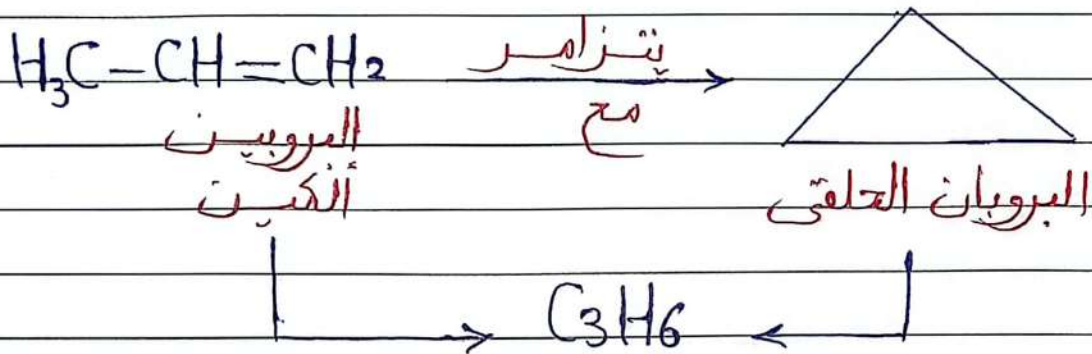 H₃C–CH=CH₂ يتزامر
مع
البروبين
ألكين
البروبان الحلقي
C₃H₆